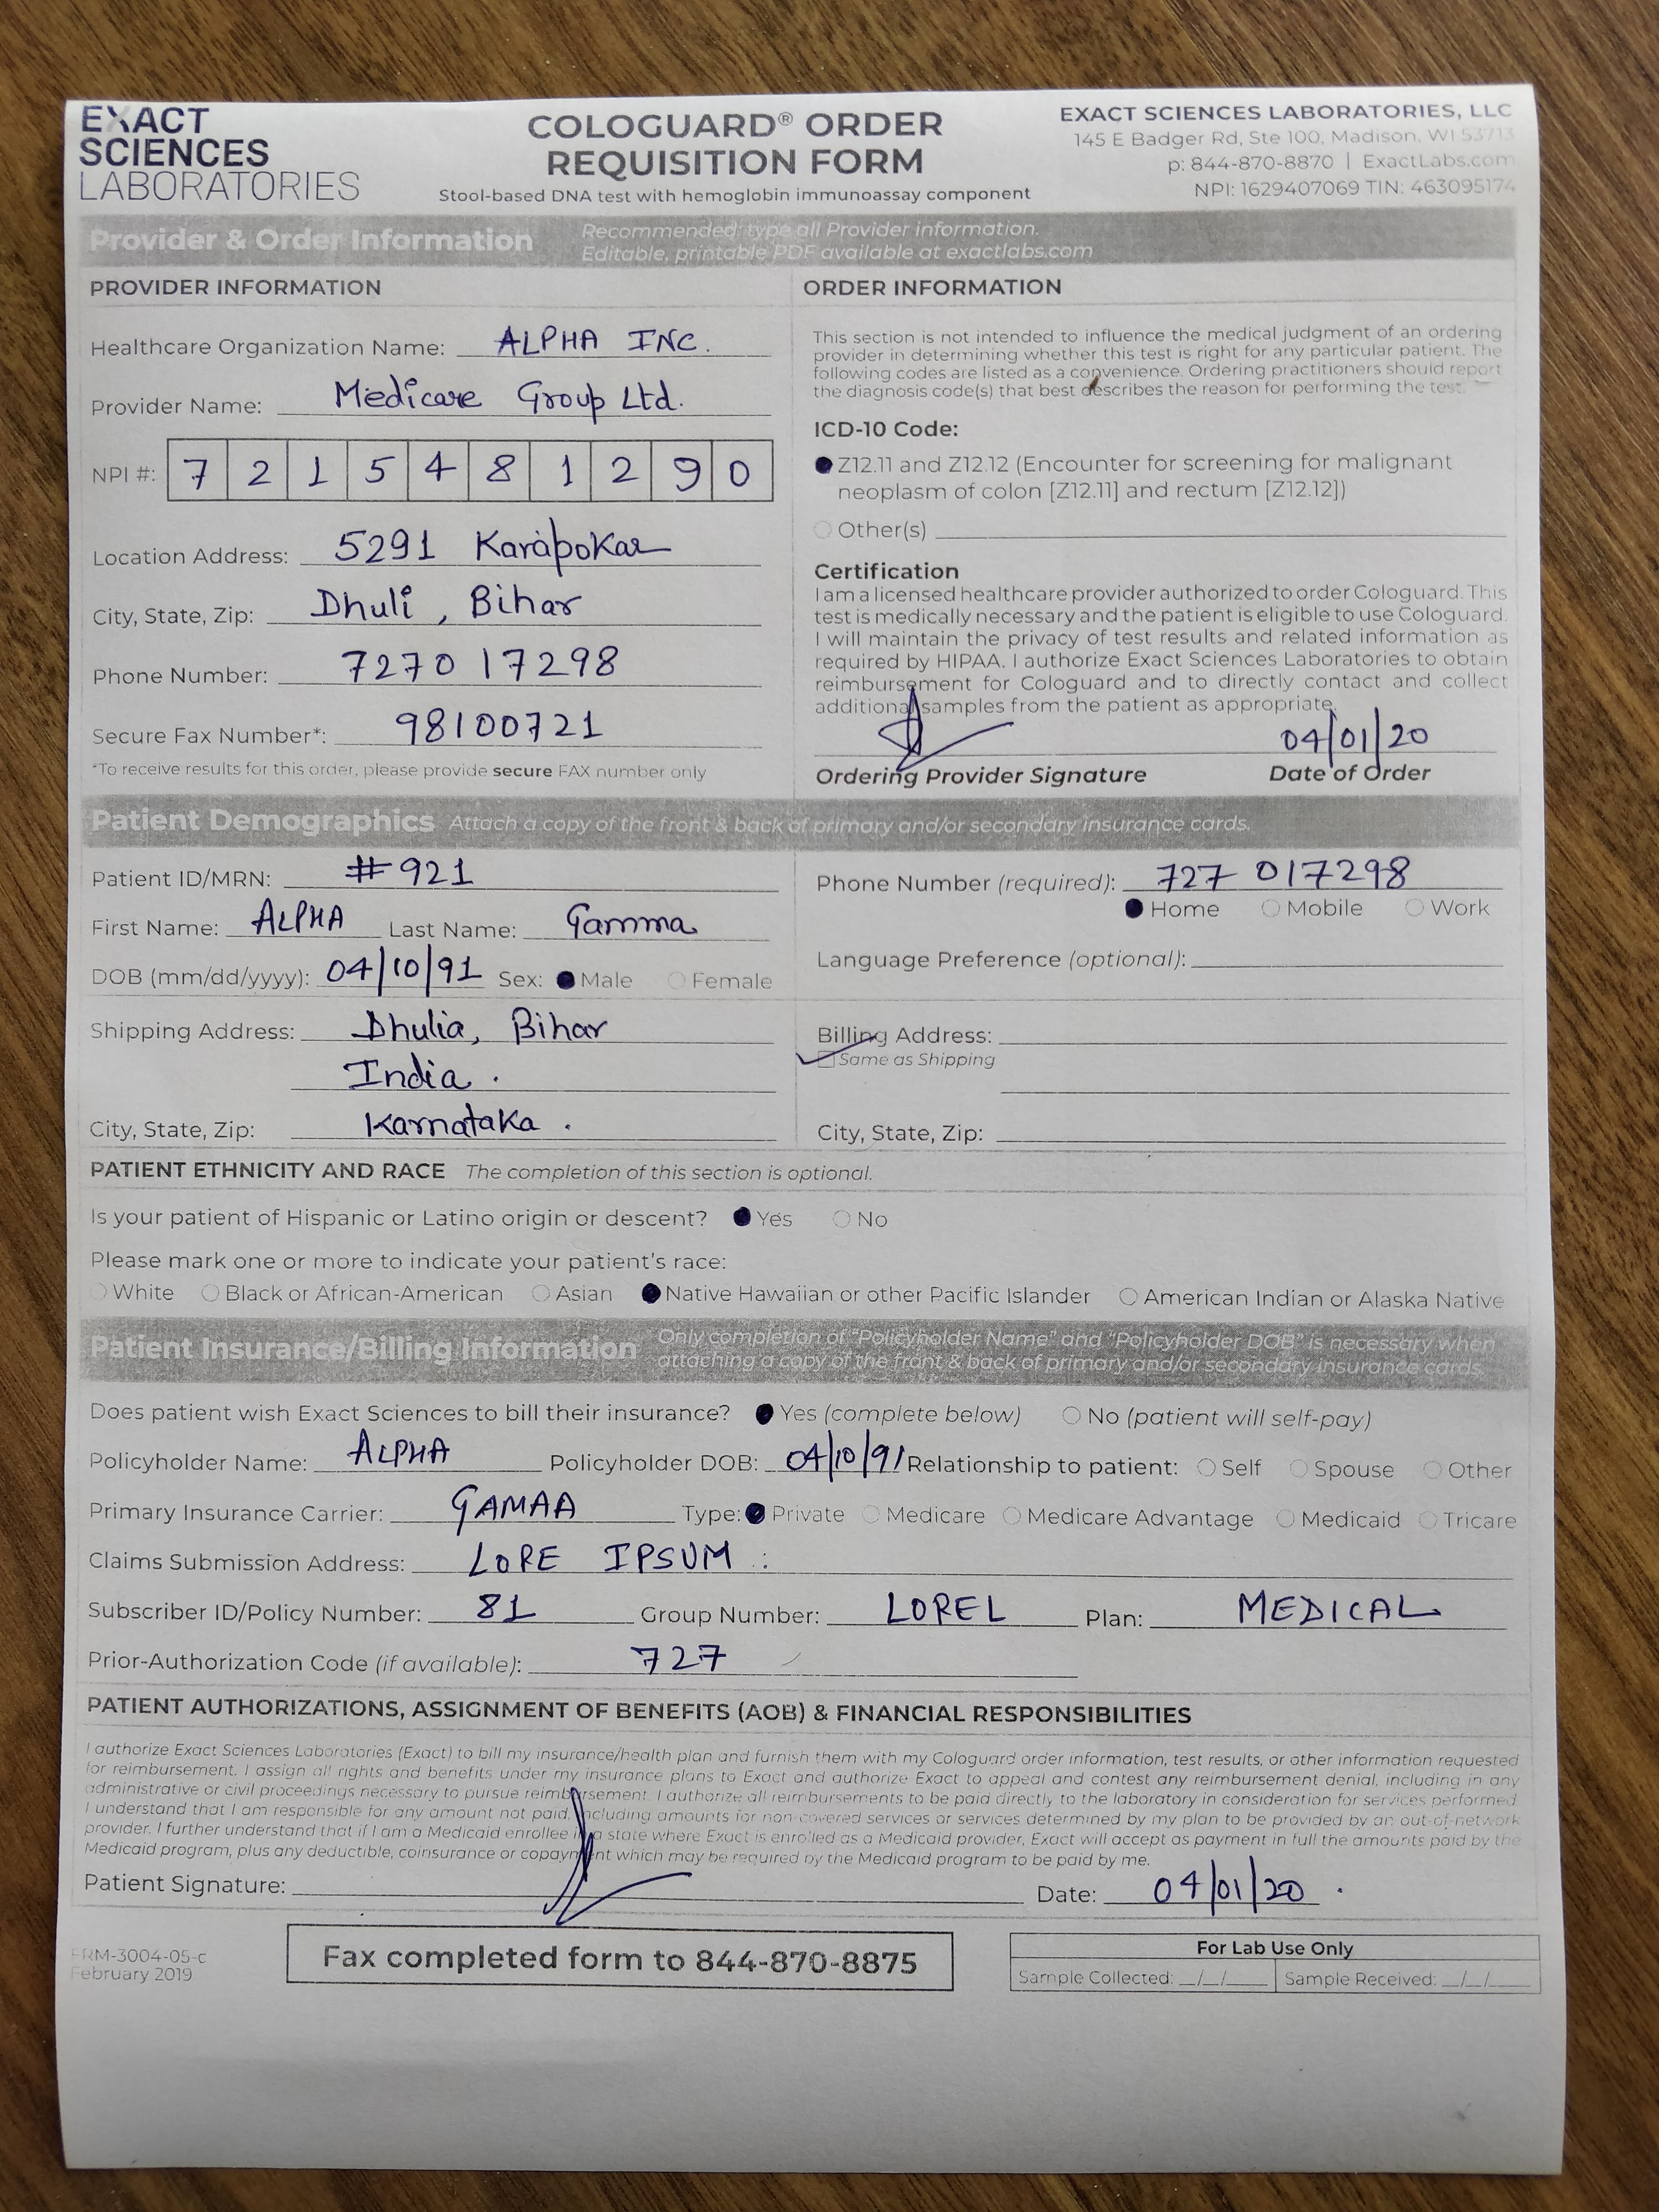 EXACT
SCIENCES
LABORATORIES
COLOGUARD® ORDER
REQUISITION FORM
Stool-based DNA test with hemoglobin immunoassay component
EXACT SCIENCES LABORATORIES, LLC
145 E Badger Rd, Ste 100, Madison, WI 53713
p: 844-870-8870 | ExactLabs.com
NPI: 1629407069 TIN: 463095174
Provider & Order Information
Recommended: type all Provider information.
Editable, printable PDF available at exactlabs.com
PROVIDER INFORMATION
Healthcare Organization Name: ALPHA INC.
Provider Name: Medicare Group Ltd.
NPI #: 7 2 1 5 4 8 1 2 9 0
Location Address: 5291 Karapokar
City, State, Zip: Dhuli, Bihar
Phone Number: 7270 17298
Secure Fax Number*: 98100721
*To receive results for this order, please provide secure FAX number only
ORDER INFORMATION
This section is not intended to influence the medical judgment of an ordering
provider in determining whether this test is right for any particular patient. The
following codes are listed as a convenience. Ordering practitioners should report
the diagnosis code(s) that best describes the reason for performing the test.
ICD-10 Code:
Z12.11 and Z12.12 (Encounter for screening for malignant
neoplasm of colon [Z12.11] and rectum [Z12.12])
Other(s)
Certification
I am a licensed healthcare provider authorized to order Cologuard. This
test is medically necessary and the patient is eligible to use Cologuard.
I will maintain the privacy of test results and related information as
required by HIPAA. I authorize Exact Sciences Laboratories to obtain
reimbursement for Cologuard and to directly contact and collect
additional samples from the patient as appropriate.
04/01/20
Ordering Provider Signature Date of Order
Patient Demographics Attach a copy of the front & back of primary and/or secondary insurance cards.
Patient ID/MRN: #921
First Name: ALPHA Last Name: Gamma
DOB (mm/dd/yyyy): 04/10/91 Sex: Male Female
Shipping Address: Dhulia, Bihar
India.
City, State, Zip: Karnataka.
Phone Number (required): 727 017298
Home Mobile Work
Language Preference (optional):
Billing Address:
Same as Shipping
City, State, Zip:
PATIENT ETHNICITY AND RACE The completion of this section is optional.
Is your patient of Hispanic or Latino origin or descent? Yes No
Please mark one or more to indicate your patient's race:
White Black or African-American Asian Native Hawaiian or other Pacific Islander American Indian or Alaska Native
Patient Insurance/Billing Information
Only completion of "Policyholder Name" and "Policyholder DOB" is necessary when
attaching a copy of the front & back of primary and/or secondary insurance cards.
Does patient wish Exact Sciences to bill their insurance? Yes (complete below) No (patient will self-pay)
Policyholder Name: ALPHA Policyholder DOB: 04/10/91 Relationship to patient: Self Spouse Other
Primary Insurance Carrier: GAMAA Type: Private Medicare Medicare Advantage Medicaid Tricare
Claims Submission Address: LORE IPSUM
Subscriber ID/Policy Number: 81 Group Number: LOREL Plan: MEDICAL
Prior-Authorization Code (if available): 727
PATIENT AUTHORIZATIONS, ASSIGNMENT OF BENEFITS (AOB) & FINANCIAL RESPONSIBILITIES
I authorize Exact Sciences Laboratories (Exact) to bill my insurance/health plan and furnish them with my Cologuard order information, test results, or other information requested
for reimbursement. I assign all rights and benefits under my insurance plans to Exact and authorize Exact to appeal and contest any reimbursement denial, including in any
administrative or civil proceedings necessary to pursue reimbursement. I authorize all reimbursements to be paid directly to the laboratory in consideration for services performed.
I understand that I am responsible for any amount not paid, including amounts for non-covered services or services determined by my plan to be provided by an out-of-network
provider. I further understand that if I am a Medicaid enrollee in a state where Exact is enrolled as a Medicaid provider, Exact will accept as payment in full the amounts paid by the
Medicaid program, plus any deductible, coinsurance or copayment which may be required by the Medicaid program to be paid by me.
Patient Signature: Date: 04/01/20.
FRM-3004-05-c
February 2019
Fax completed form to 844-870-8875
For Lab Use Only
Sample Collected: _/_/___ Sample Received: _/_/___